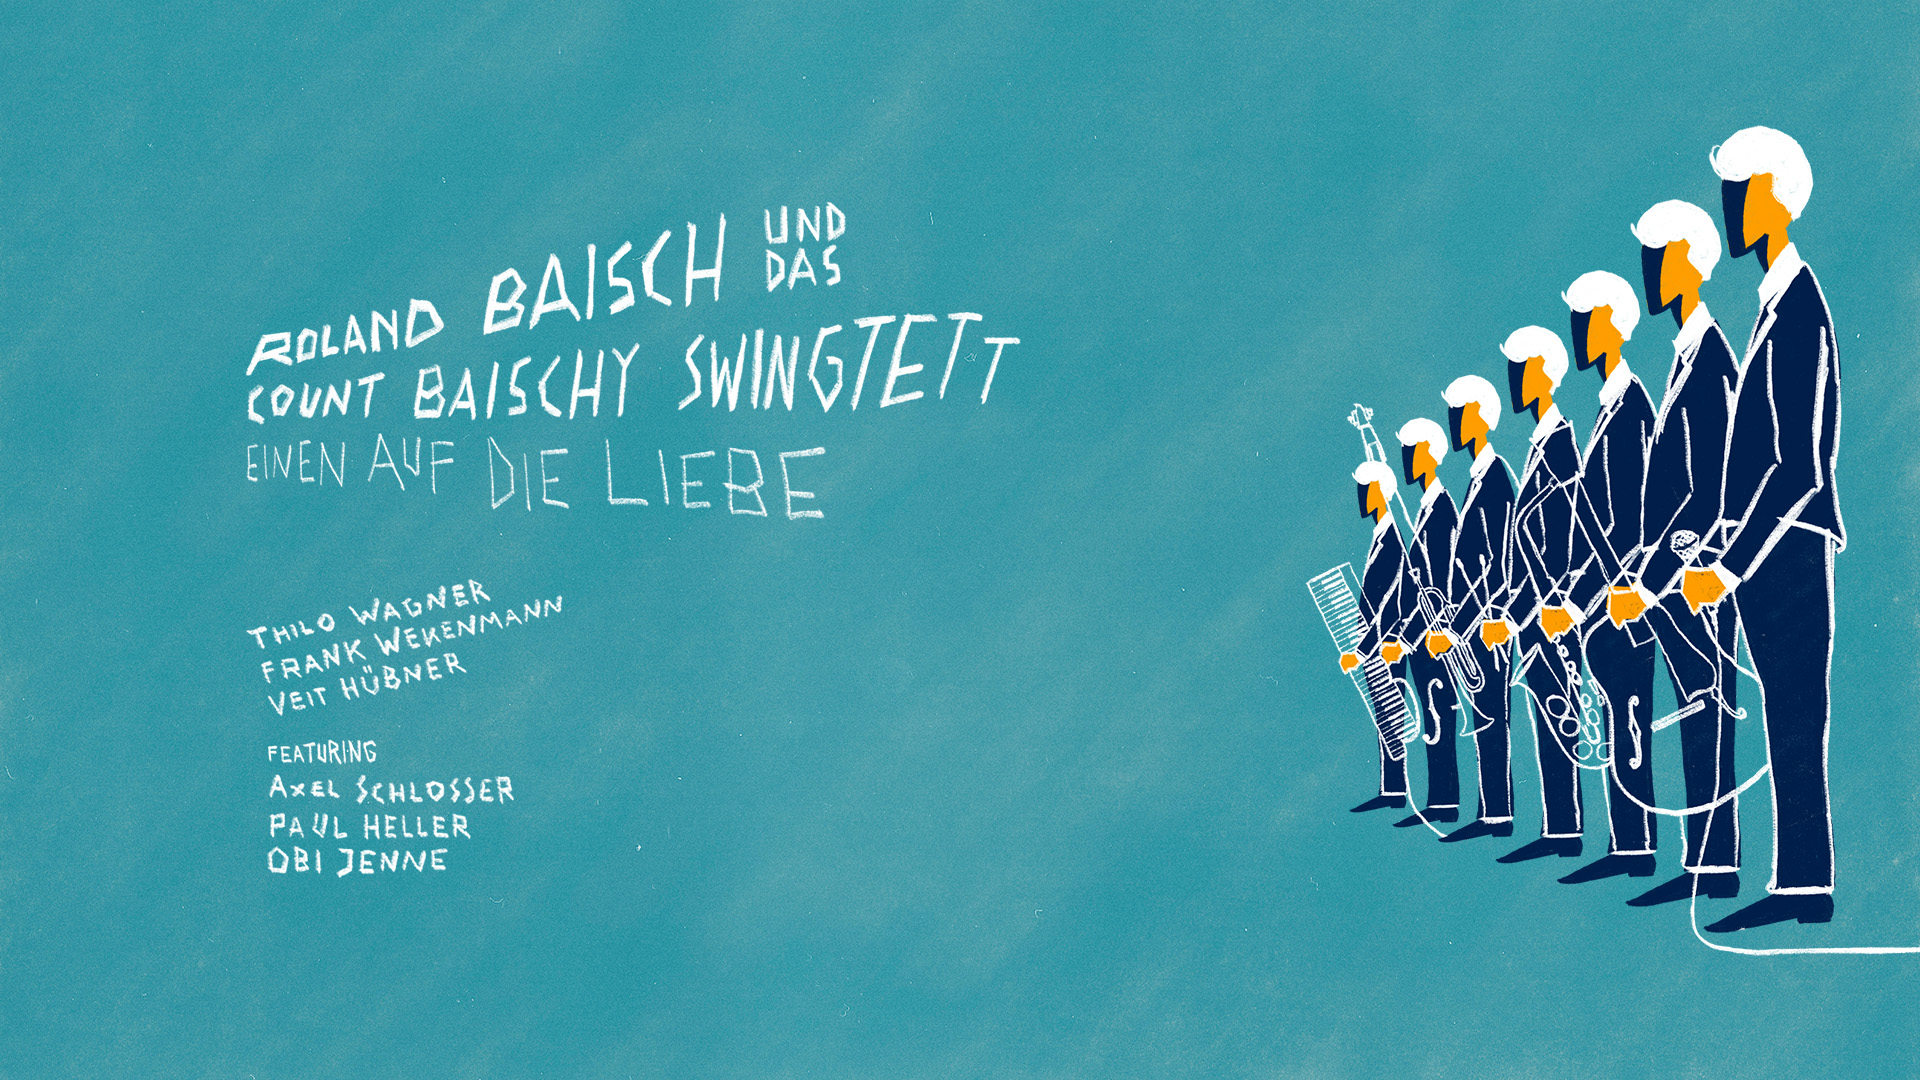 ROLAND BAISCH UND DAS
COUNT BAISCHY SWINGTETT
EINEN AUF DIE LIEBE
THILO WAGNER
FRANK WEKENMANN
VEIT HÜBNER
FEATURING
AXEL SCHLOSSER
PAUL HELLER
OBI JENNE